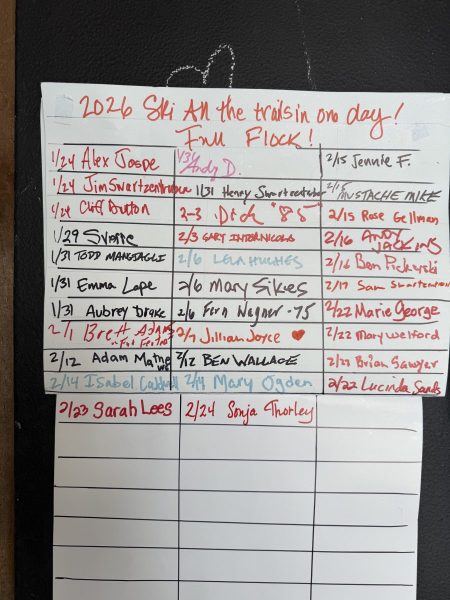 2026 Ski All the trails in one day!
Full Flock!
1/24 Alex Jospe
1/31 Andy D.
2/15 Jennie F.
1/24 Jim Swartzentruber
1/31 Henry Swartzentruber
2/15 MUSTACHE MIKE
1/24 Cliff Dutton
2-3 Dick "85"
2/15 Rose Gellman
1/29
2/3 GARY INTERNICOLA
2/16 ANDY JACKINS
1/31 TODD MANGIAGLI
2/6 LELA HUGHES
2/16 Ben
1/31 Emma Lape
2/6 Mary Sikes
2/17 Sam Swartzentruber
1/31 Aubrey Drake
2/6 Fern Wagner - 75
2/22 Marie George
2/1 Brett Adams
2/7 Jillian Joyce
2/22 Mary Welford
2/12 Adam
2/12 BEN WALLACE
2/22 Brian Sawyer
2/14 Isabel Caldwell
2/14 Mary Ogden
2/22 Lucinda Sands
2/23 Sarah Lees
2/24 Sonja Thorley